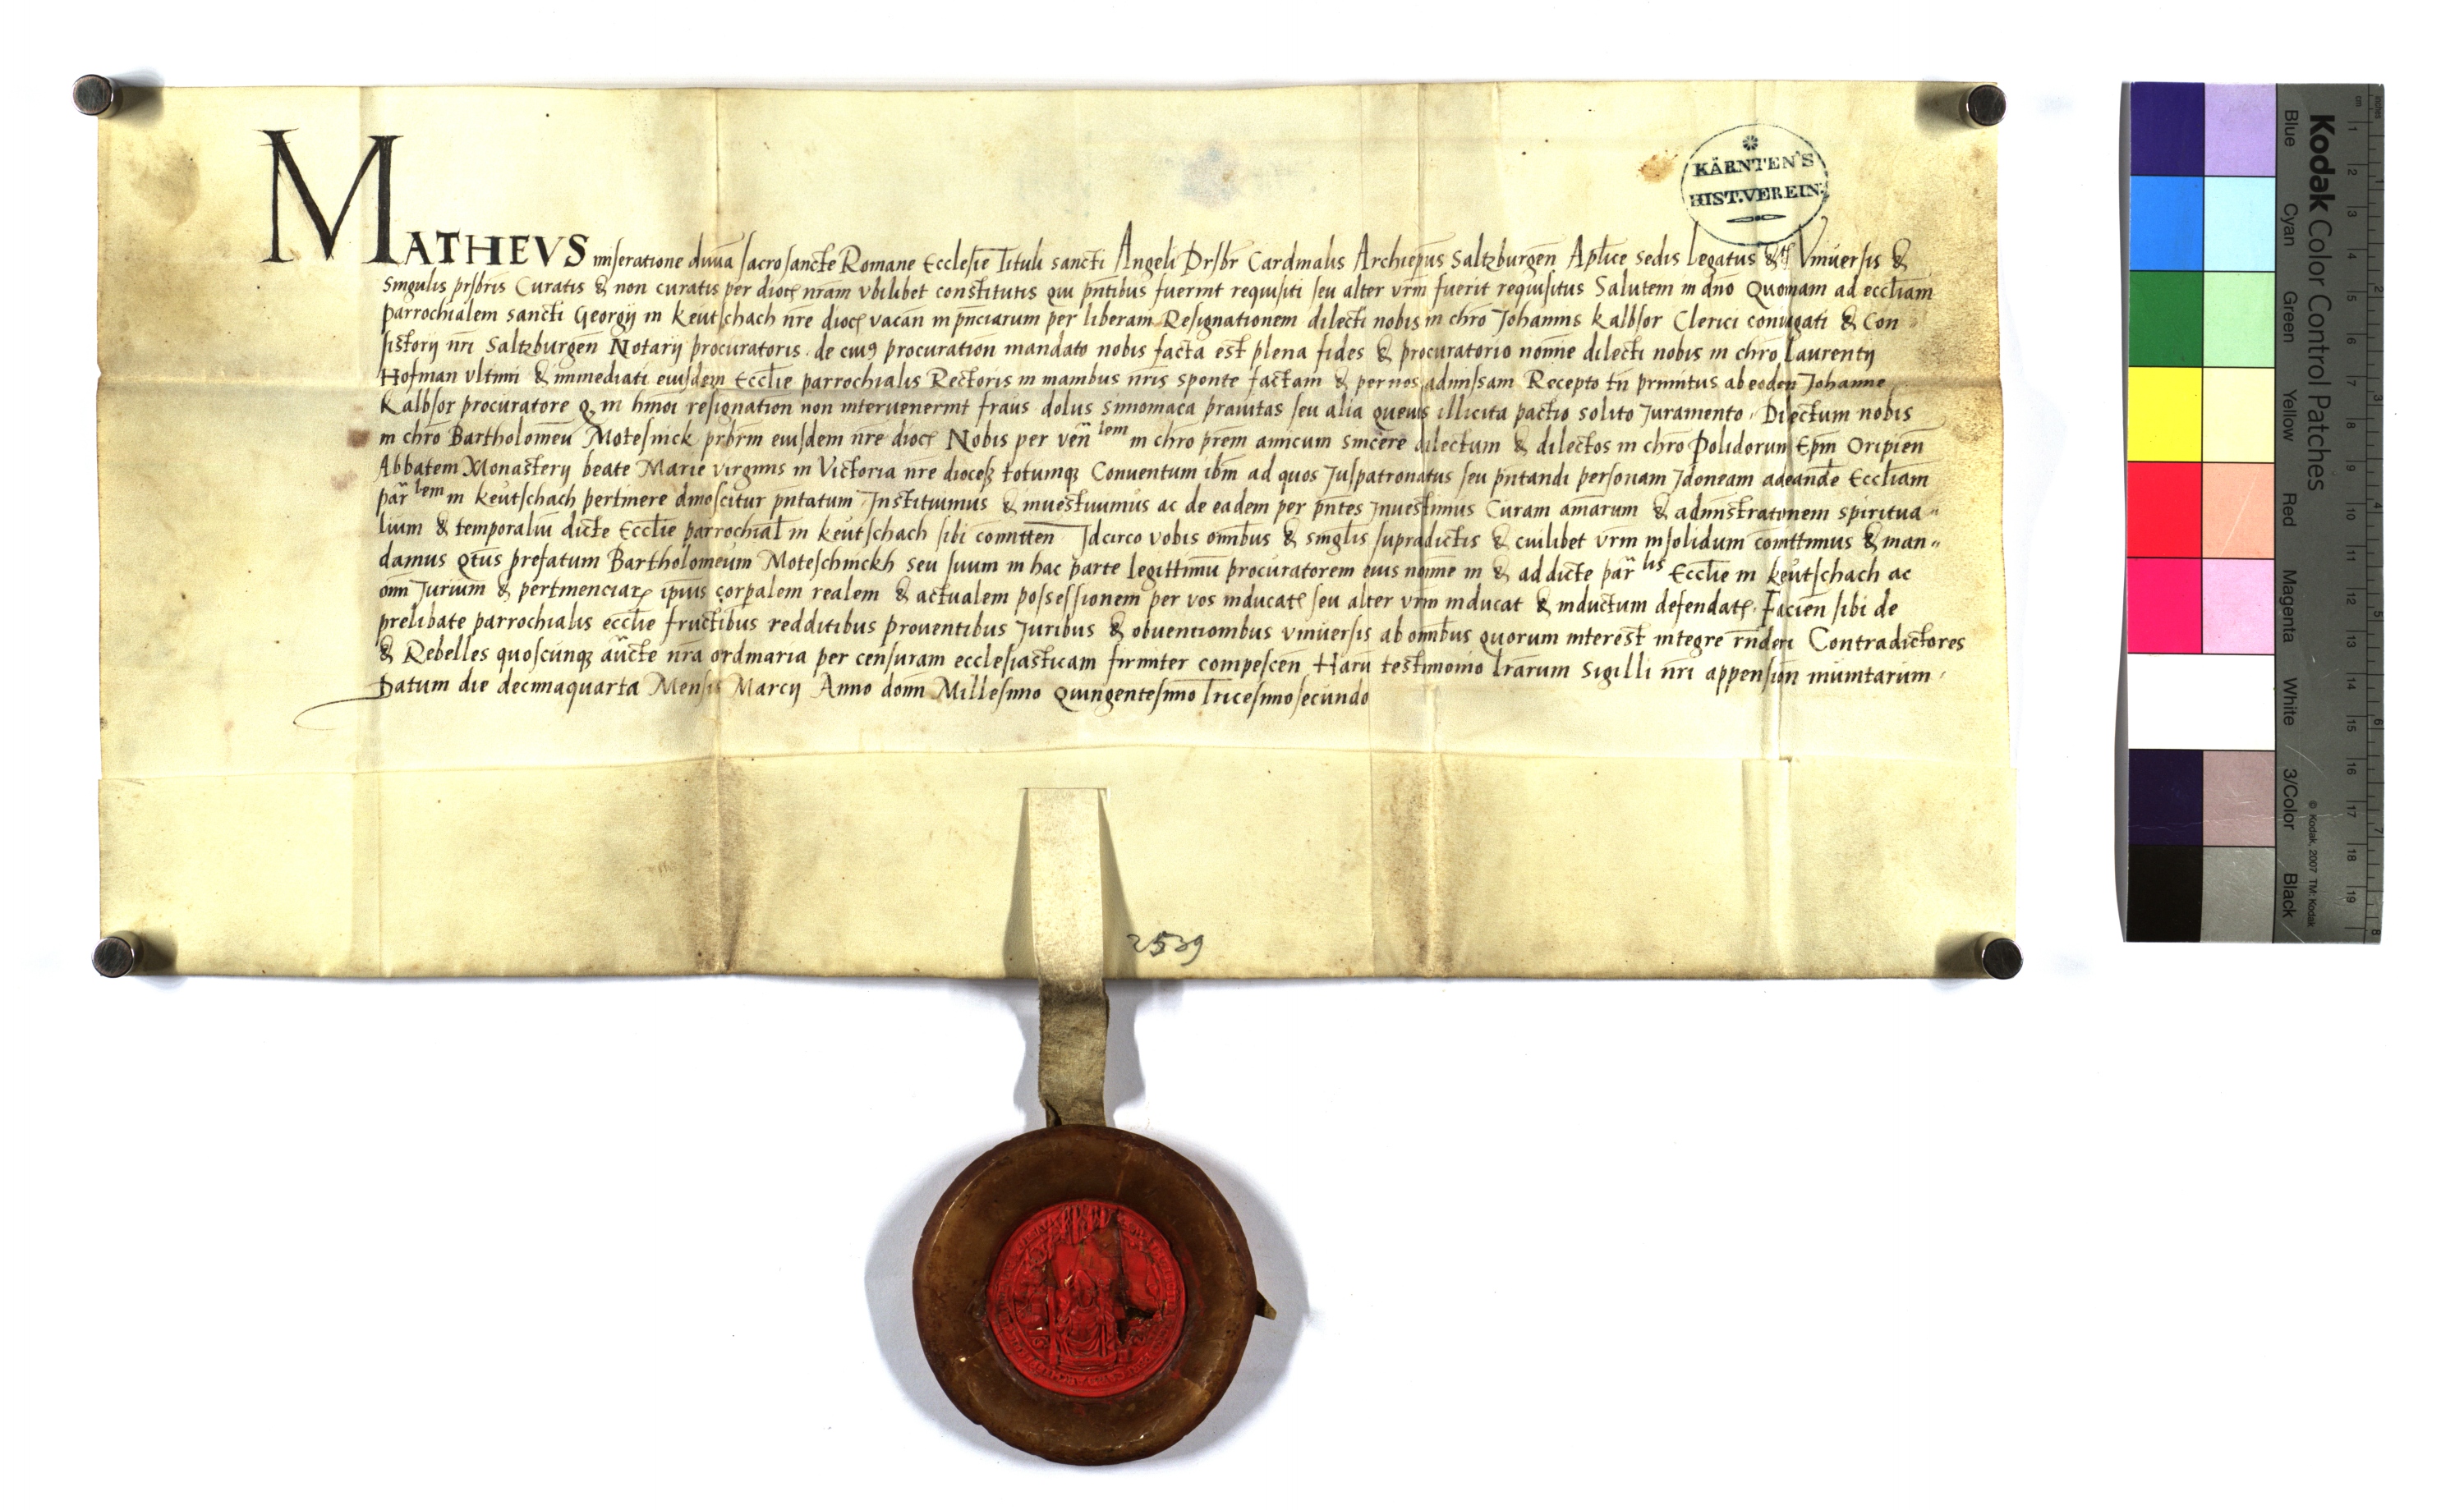 MATHEVS miseratione diuīa sacrosancte Romane Ecclesie Tituli sancti Angeli Prsbr Cardinalis Archiepūs Saltzburgeñ Aplīce sedis Legatus &c Vniuersis &
Singulis prsbris Curatis & non curatis per dioc̄ nram̄ vbilibet constitutis qui pn̄tibus fuerint requisiti seu alter vrm̄ fuerit requisitus Salutem in dn̄o Quoniam ad eccliam̄
parrochialem sancti Georgij in keutschach nr̄e dioc̄ vacañ in pn̄ciarum per liberam Resignationem dilecti nobis in chro Johannis kalbsor Clerici coniugati & Con
sistorij nr̄i Saltzburgeñ Notarij procuratoris de cuiꝯ procuration mandato nobis facta est plena fides & procuratorio noīne dilecti nobis in chro Laurentij
Hofman vltimi & immediati eiusdem Ecclīe parrochialis Rectoris in manibus nr̄is sponte factam & per nos admissam Recepto tn̄ primitus ab eoden Johanne
kalbsor procuratore ꝙ in hmōi resignation non interuenerint fraus dolus simoniaca prauitas seu alia queuis illicita pactio solito Juramento Dilectum nobis
in chrō Bartholomeū Motesnick prbrm̄ eiusdem nr̄e dioc̄ Nobis per ven̄lem in chrō prēm amicum sincere dilectum & dilectos in chrō Polidorum Epm̄ Oripieñ
Abbatem Monasterij beate Marie virginis in Victoria nr̄e diocef̧ totumqꝫ Conuentum ibm̄ ad quos Juspatronatus seu pn̄tandi personam Jdoneam ad eandē Eccliam̄
par̄lem in keutschach pertinere dinoscitur pn̄tatum Jnstituimus & inuestiuimus ac de eadem per pn̄tes Jnuestimus Curam aīarum & admistrationem spiritua
lium & temporaliū dicte Ecclīe parrochial̄ in keutschach sibi comitteñ Jdcirco vobis om̄ibus & singlis̄ supradictis & cuilibet vrm̄ insolidum comīttimus & man
damus qtūs prefatum Bartholomeūm Moteschnickh seu suum in hac parte legittimū procuratorem eius noīne in & ad dicte par̄lis Ecclīe in keutschach ac
om̄ Jurium & pertinenciaꝝ ipiūs corpalem realem & actualem possessionem per vos inducatꝭ seu alter vrm̄ inducat & inductum defendatꝭ Facieñ sibi de
prelibate parrochialis ecclīe fructibus redditibus prouentibus Juribus & obuentionibus vniuersis ab om̄ibus quorum interest integre rn̄deri Contradictores
& Rebelles quoscunqꝫ auc̄te nr̄a ordinaria per censuram ecclesiasticam firmiter compesceñ Harū testimonio lrarum Sigilli nr̄i appension munitarum
Datum die decimaquarta Mensis Marcij Anno domī Millesimo Quingentesimo Tricesimosecundo
KÄRNTEN'S
HIST. VEREIN.
2539
Kodak Color Control Patches
Blue Cyan Green Yellow Red Magenta White 3/Color Black
© Kodak, 2007 TM: Kodak
inches 1 2 3 4 5 6 7 8
cm 1 2 3 4 5 6 7 8 9 10 11 12 13 14 15 16 17 18 19